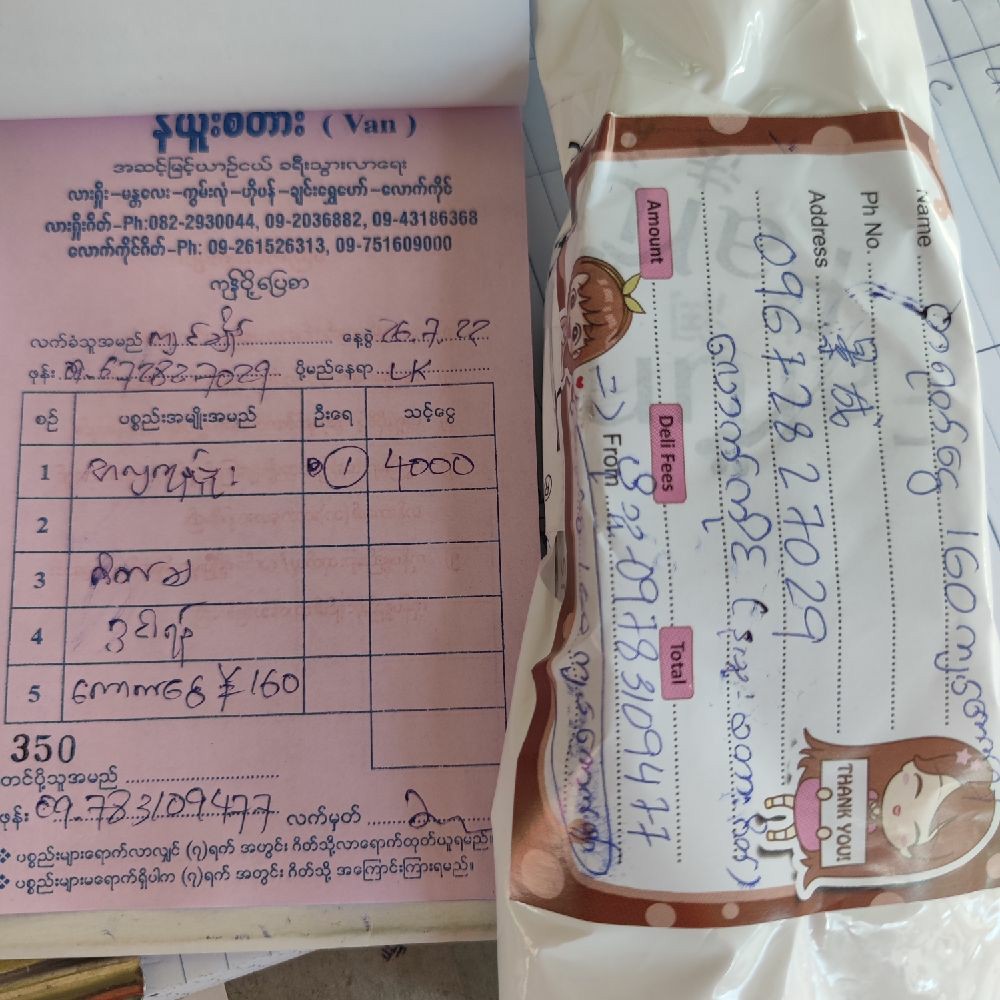 နယူးစတား ( Van )
အဆင့်မြင့်ယာဉ်ငယ် ခရီးသွားလာရေး
လားရှိုး–မန္တလေး–ကွမ်းလုံ–ဟိုပန်–ချင်းရွှေဟော်–လောက်ကိုင်
လားရှိုးဂိတ်–Ph:082-2930044, 09-2036882, 09-43186368
လောက်ကိုင်ဂိတ်–Ph: 09-261526313, 09-751609000
ကုန်ပို့ပြေစာ
လက်ခံသူအမည် နေ့စွဲ 26.7.22
ဖုန်း 09.672827029 ပို့မည့်နေရာ LK
စဉ် ပစ္စည်းအမျိုးအမည် ဦးရေ သင့်ငွေ
1 ① 4000
2
3
4
5 ကောက်ငွေ ¥ 160
350
တင်ပို့သူအမည်
ဖုန်း 09.783109477 လက်မှတ်
❖ ပစ္စည်းများရောက်လာလျှင် (၇)ရက် အတွင်း ဂိတ်သို့လာရောက်ထုတ်ယူရမည်။
❖ ပစ္စည်းများမရောက်ရှိပါက (၇)ရက် အတွင်း ဂိတ်သို့ အကြောင်းကြားရမည်။
160
Name
Ph No.
Address
09672827029
လောက်ကိုင်
Amount Deli Fees Total
From 09783109477
THANK YOU!